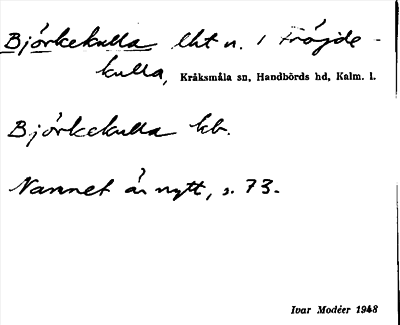 Björkekulla lht u. / Fröjde-
kulla, Kråksmåla sn, Handbörds hd, Kalm. l.
Björkekulla kb.
Namnet är nytt, s. 73.
Ivar Modéer 1948